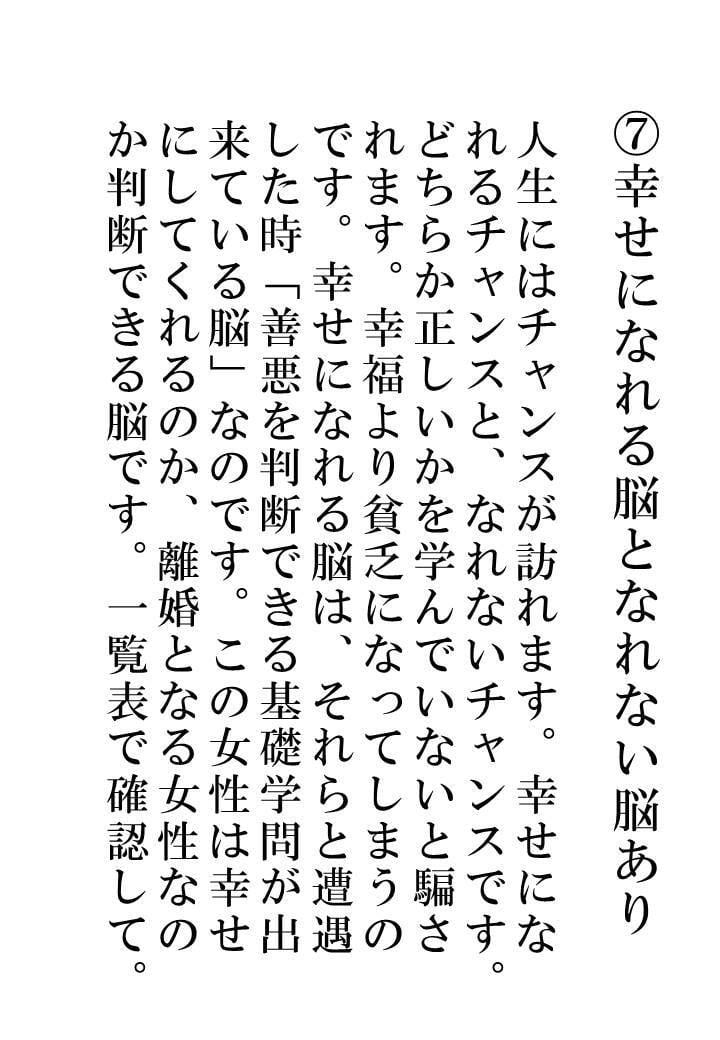 ⑦幸せになれる脳となれない脳あり
人生にはチャンスが訪れます。幸せにな
れるチャンスと、なれないチャンスです。
どちらか正しいかを学んでいないと騙さ
れます。幸福より貧乏になってしまうの
です。幸せになれる脳は、それらと遭遇
した時「善悪を判断できる基礎学問が出
来ている脳」なのです。この女性は幸せ
にしてくれるのか、離婚となる女性なの
か判断できる脳です。一覧表で確認して。